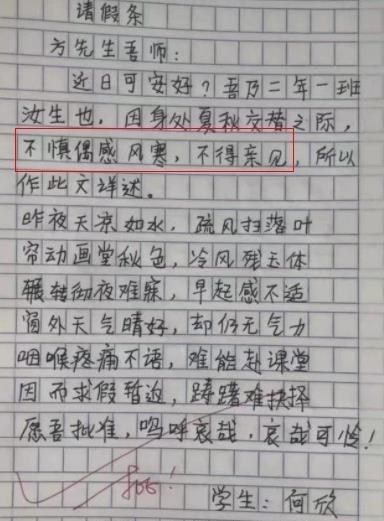 请假条
方先生吾师：
近日可安好？吾乃二年一班
汝生也，因身处夏秋交替之际，
不慎偶感风寒，不得亲见，所以
作此文详述。
昨夜天凉如水，疏风扫落叶
帘动画堂秋色，冷风残玉体
辗转彻夜难寐，早起感不适
窗外天气晴好，却仍无气力
咽喉疼痛不语，难能赴课堂
因而求假暂返，踌躇难抉择
愿吾批准，呜呼哀哉，哀哉可怜！
学生：何欣